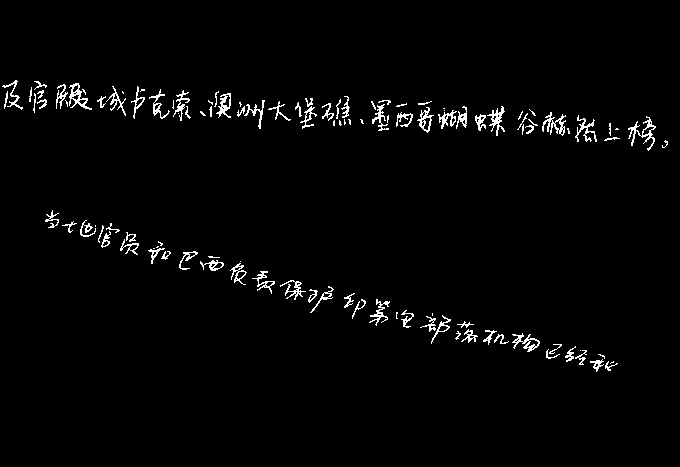 及宫殿城卢克索、澳洲大堡礁、墨西哥蝴蝶谷赫然上榜。
当地官员和巴西负责保护印第安部落机构已经和